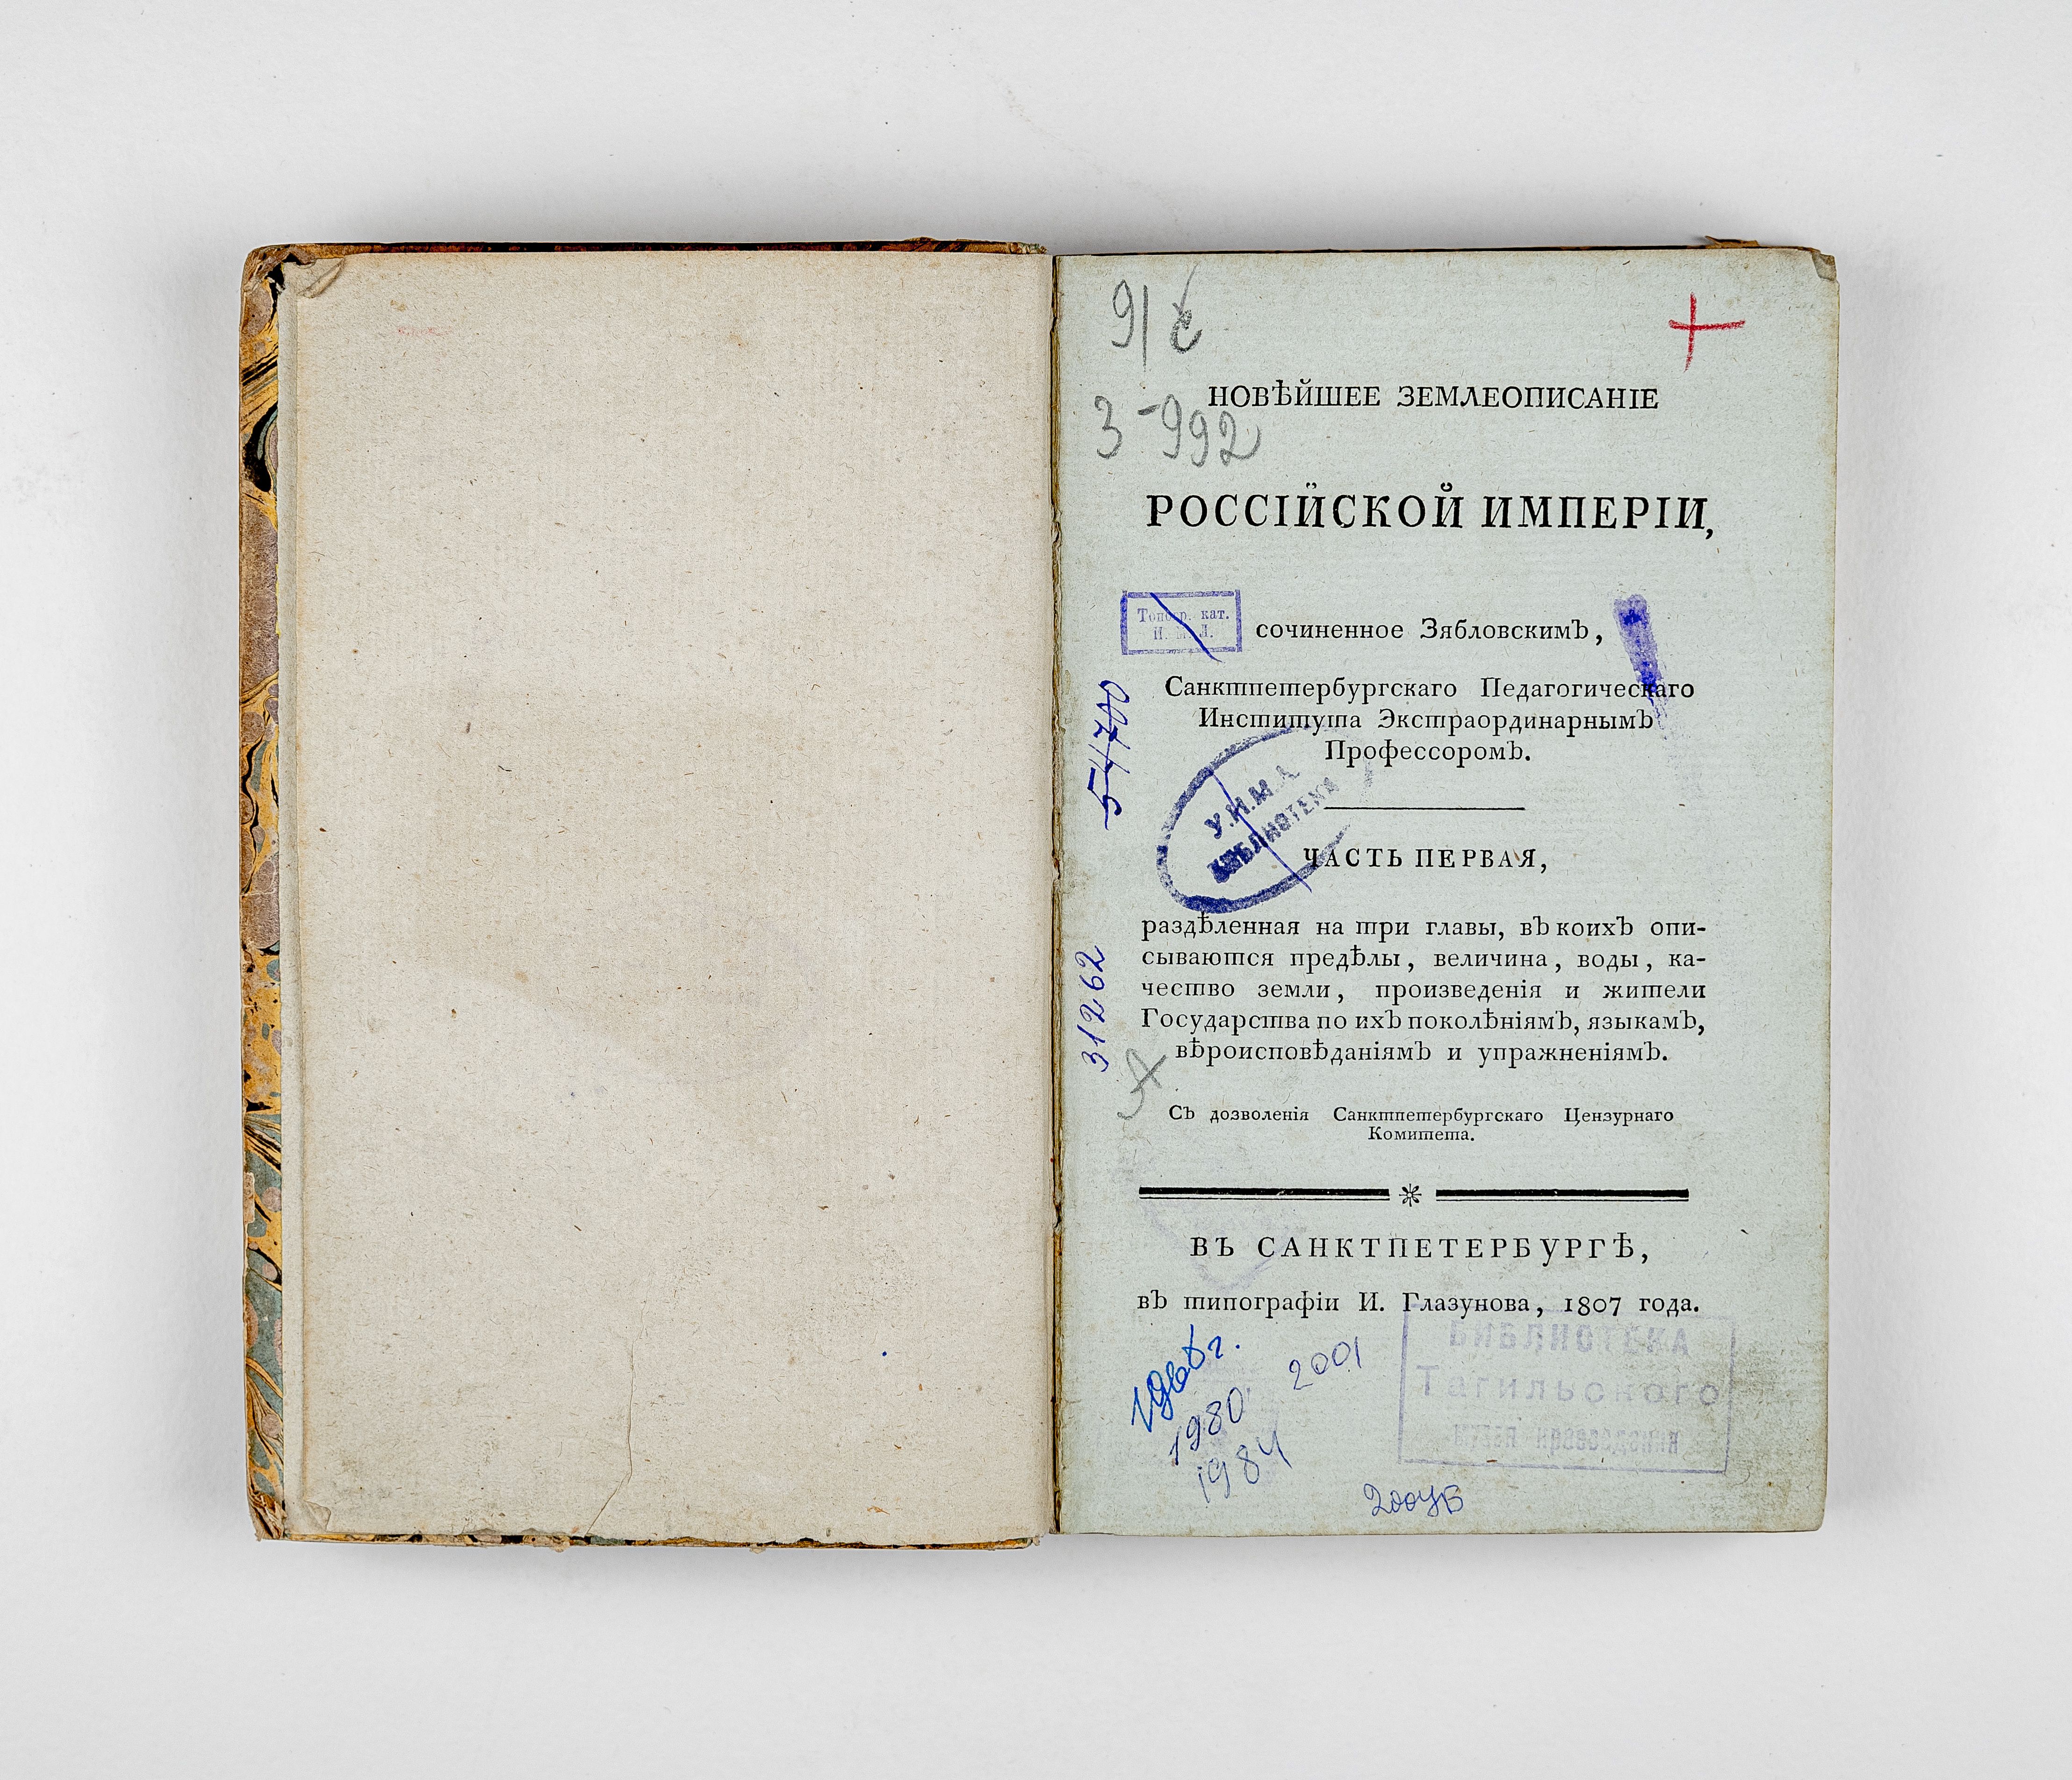 91
3-992
НОВѢЙШЕЕ ЗЕМЛЕОПИСАНІЕ
РОССІЙСКОЙ ИМПЕРІИ,
Топогр. кат.
сочиненное Зябловскимъ,
Санктпетербургскаго Педагогическаго
Института Экстраординарнымъ
Профессоромъ.
54700
У.И.М.А.
БИБЛИОТЕКА
ЧАСТЬ ПЕРВАЯ,
раздѣленная на три главы, въ коихъ опи-
сываются предѣлы, величина, воды, ка-
чество земли, произведенія и жители
Государства по ихъ поколѣніямъ, языкамъ,
вѣроисповѣданіямъ и упражненіямъ.
31262
Съ дозволенія Санктпетербургскаго Цензурнаго
Комитета.
ВЪ САНКТПЕТЕРБУРГѢ,
въ типографіи И. Глазунова, 1807 года.
БИБЛИОТЕКА
Тагильского
музея краеведения
1966г.
1980
1984
2001
2004